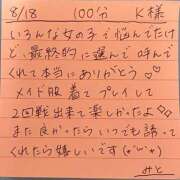 8/18 100分 K様
いろんな女の子で悩んでたけ
ど、最終的に選んで呼んで
くれて本当にありがとう♡
メイド服着てプレイして
2回戦出来て楽しかったよ♡
また良かったらいつでも誘って
くれたら嬉しいです(*'ω'*)
みと